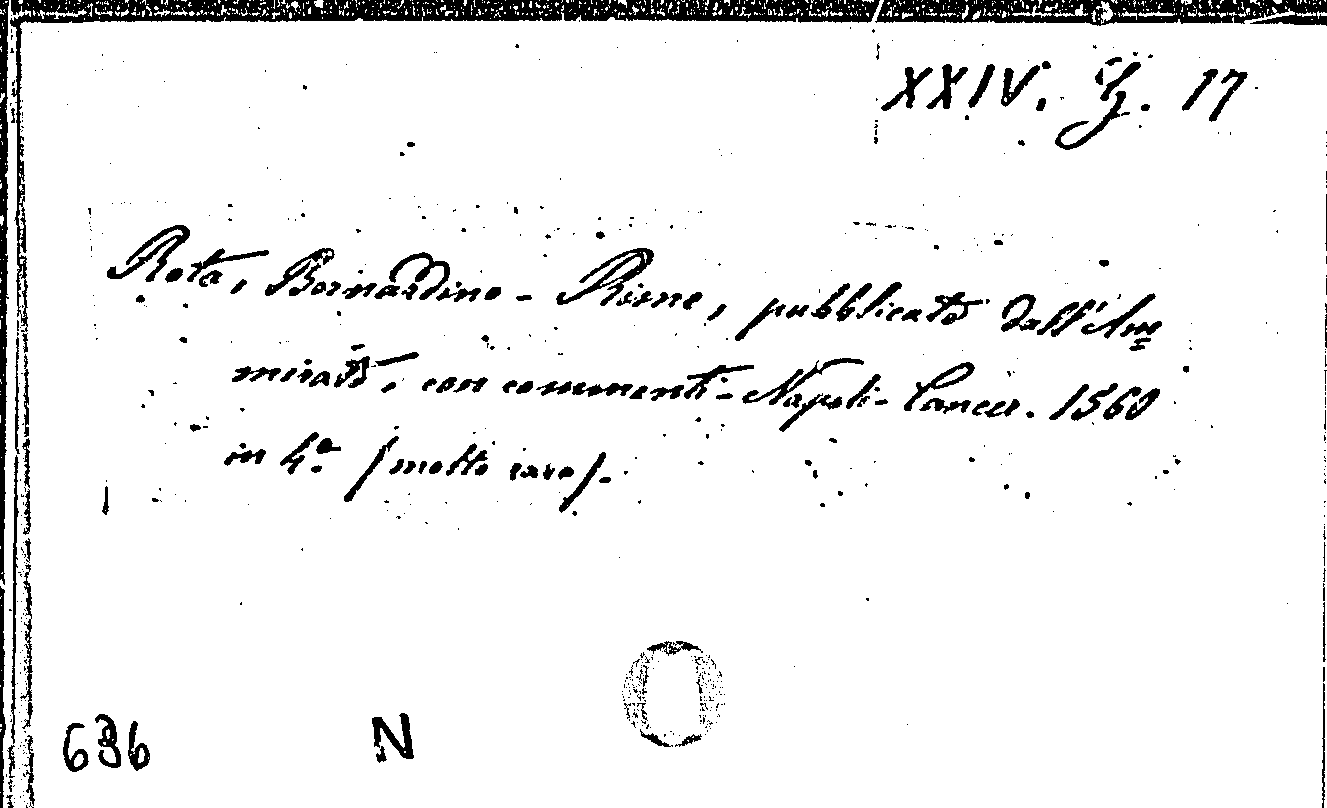 XXIV. G. 17
Rota, Bernardino - Rime, pubblicate dall'Am=
mirato, con commenti - Napoli - Cancer. 1560
in 4.º (molto raro).
N